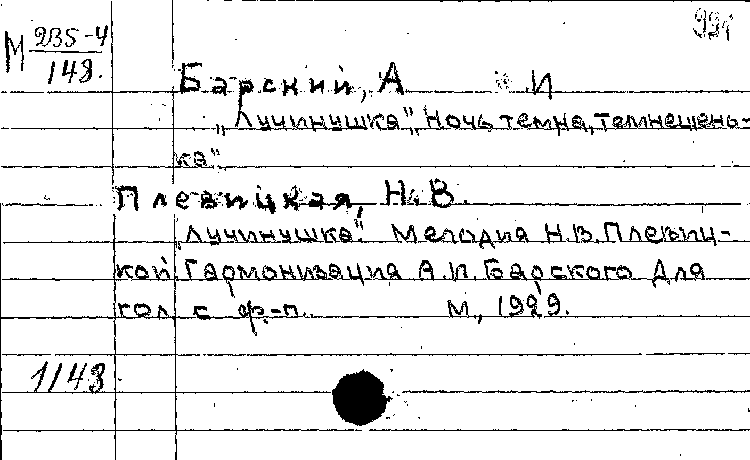 991
М 235-4
148.
Барский, А И
„Лучинушка", Ночь темна, темнешень-
ка".
Плевицкая, Н.В.
„Лучинушка". Мелодия Н.В. Плевиц-
кой. Гармонизация А.И. Барского Для
гол. с ф.-п. М., 1929.
1148